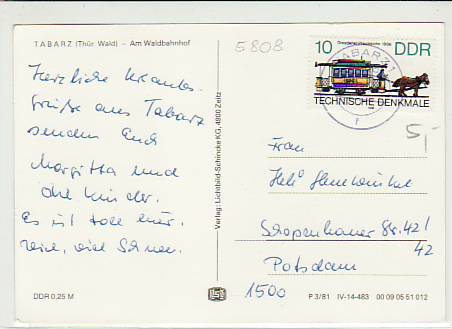 TABARZ (Thür. Wald) – Am Waldbahnhof
5808
Herzliche Urlaubs-
grüße aus Tabarz
senden Euch
Margitta und
die Kinder.
Es ist toll hier.
viel, viel Schnee.
DDR 0,25 M
Verlag: Lichtbild-Schincke KG, 4900 Zeitz
10 DDR
TABARZ 1
TECHNISCHE DENKMALE
f
5,-
Frau
Schopenhauer Str. 42/
42
Potsdam
1500
P 3/81 IV-14-483 00 09 05 51 012